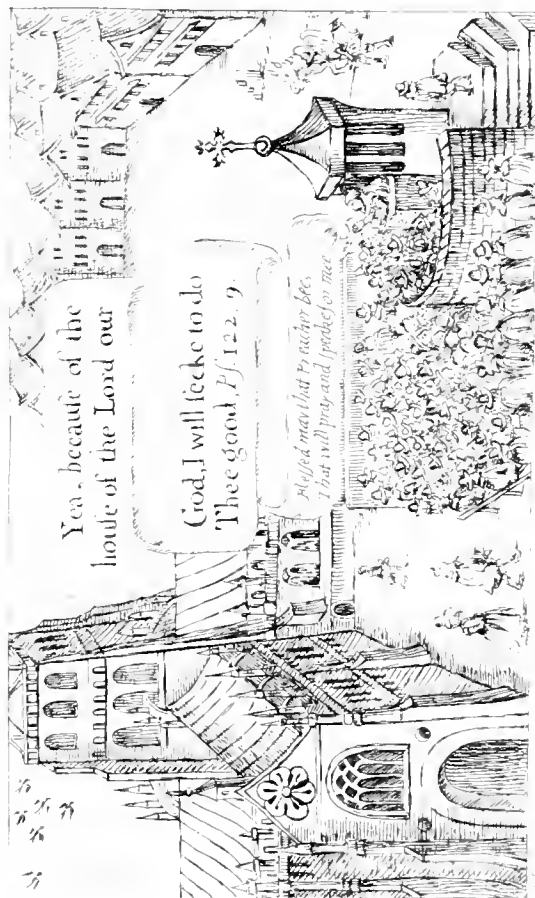 Yea, because of the
house of the Lord our
God, I will seeke to do
Thee good Ps 122. 9.
Blessed may that Preachor bee
That will pray and speake for mee